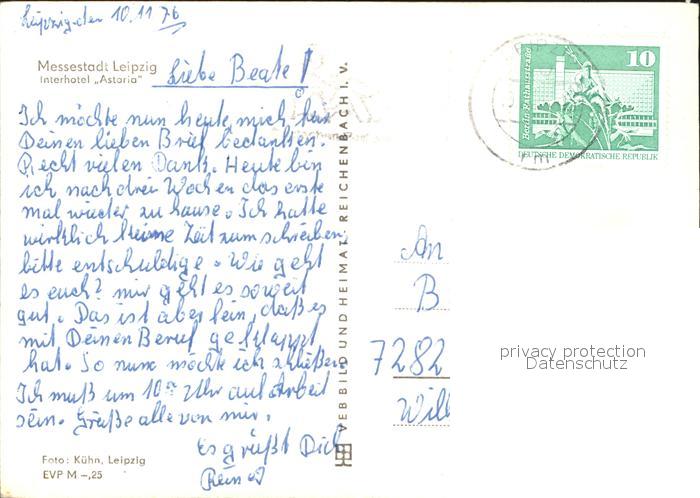 Leipzig den 10.11.76
Messestadt Leipzig
Interhotel „Astoria"
Liebe Beate!
Ich möchte nun heute mich
Deinen lieben Brief bedanken.
Recht vielen Dank. Heute bin
ich nach drei Wochen das erste
mal wieder zu hause. Ich hatte
wirklich keine Zeit zum schreiben,
bitte entschuldige. Wie geht
es euch? mir geht es soweit
gut. Das ist aber fein, daß es
mit Deinen Beruf geklappt
hat. So nun möchte ich schließen.
Ich muß um 10 Uhr auf Arbeit
sein. Grüße alle von mir.
Es grüßt Dich
Foto: Kühn, Leipzig
EVP M –,25
VEB BILD UND HEIMAT REICHENBACH I. V.
10
Berlin, Rathausstraße
DEUTSCHE DEMOKRATISCHE REPUBLIK
An
B
7282
Will
privacy protection
Datenschutz